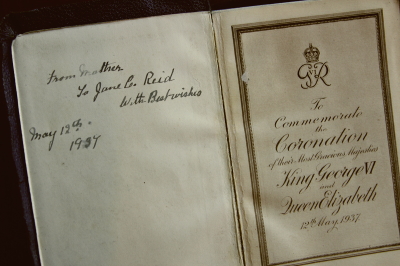 From Mother
To Jane C. Reid
With Best wishes
May 12th.
1937
GR
VI
To
Commemorate
the
Coronation
of their Most Gracious Majesties
King George VI
and
Queen Elizabeth
12th May 1937